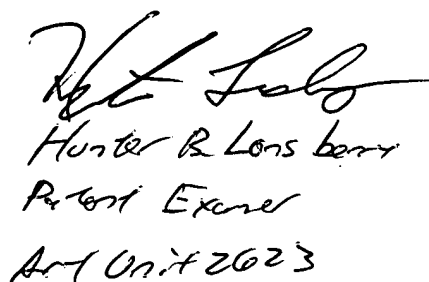 Hunter B. Lonsberry
Patent Examiner
Art Unit 2623